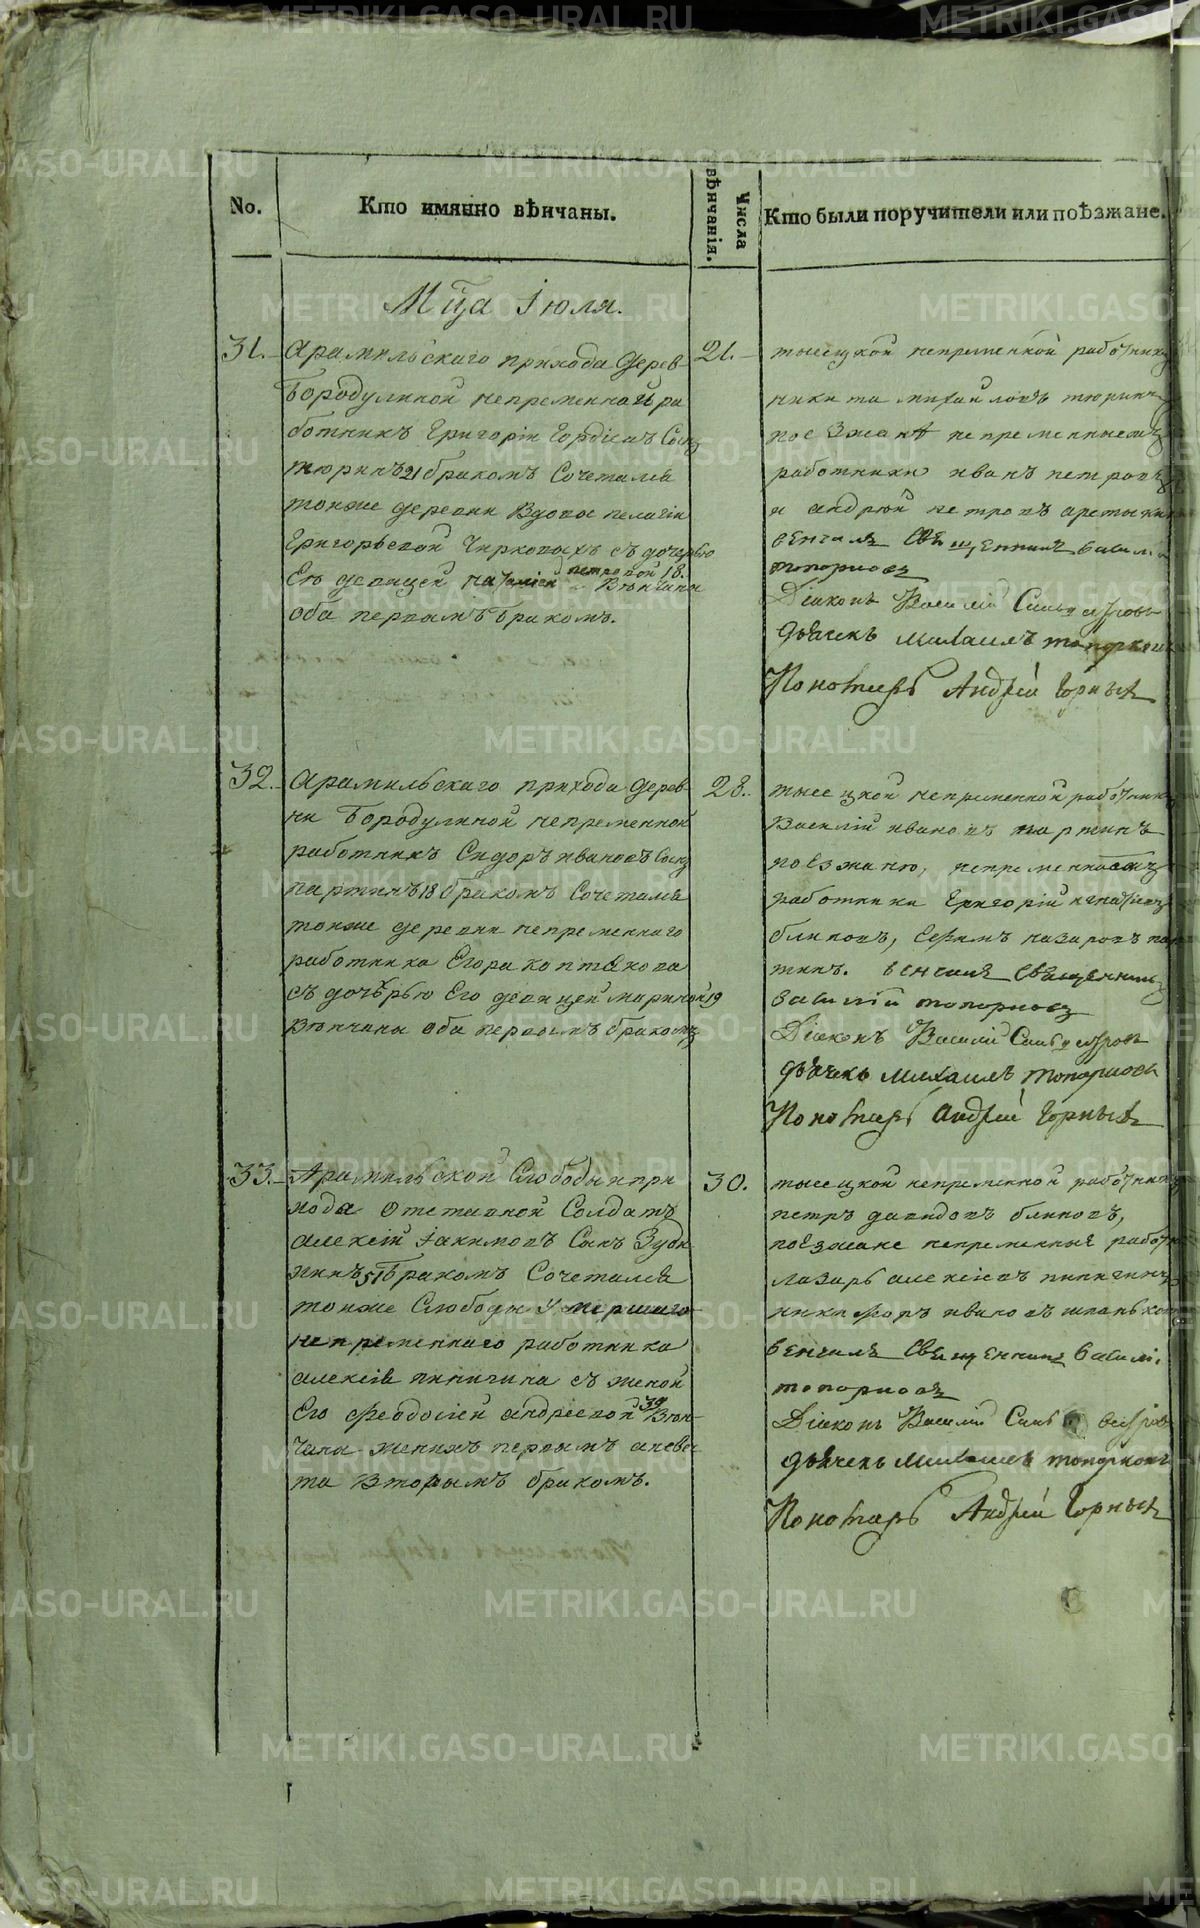 No.
Кто имянно вѣнчаны.
Числа вѣнчанія.
Кто были поручители или поѣзжане.
Мца Іюля.
31.
Арамильскаго прихода дерев-
Бородулиной непременной ра
ботникъ Григорій Гордѣевъ Сынъ
тюринъ 21 бракомъ Сочетался
тоиже деревни Вдовы пелагіи
Григорьевой Чирковыхъ съ дочерью
Ея девицей наталіей петровой 18. Венчаны
оба первымъ бракомъ.
21.
тысецкой непременной работникъ
никита михайловъ тюринъ
поезжанѣ непременныемъ
работники иванъ петровъ
и андрей петровъ
венчалъ Священникъ васили
топорковъ
Діаконъ Василій Сильвестровъ
дьячекъ михаилъ топорковъ
Пономарь Андрей Горныхъ
32.
Арамильскаго прихода дерев-
ни Бородулиной непременной
работникъ Сидоръ ивановъ Сынъ
партинъ 18 бракомъ Сочетался
тоиже деревни непременнаго
работника Егора коптякова
съ дочерью Его девицей мариной 19
Венчаны оба первымъ бракомъ
28.
тысецкой непременной работникъ
Василій ивановъ партинъ
поезжаню, непременной
работники Григорій игнатіевъ
блиновъ, Ефимъ назаровъ пар
тинъ. венчалъ Священникъ
василій топорковъ
Діаконъ Василій Сильвестровъ
дьячекъ михаилъ топорковъ
Пономарь Андрей Горныхъ
33.
Арамильской Слободы и при
хода отставной Солдатъ
алексій Іакимовъ Сынъ Зуб
кинъ 51 бракомъ Сочетался
тоиже Слободы умершаго
непременнаго работника
алексія пинигина съ женой
Его феодосіей андреевой 39 Вен-
чаны женихъ первымъ аневес
та Вторымъ бракомъ.
30.
тысецкой непременной работникъ
петръ давидовъ блиновъ,
поѣзжане непременныя работн
лазарь алексіевъ пинигинъ
никифоръ ивановъ
венчалъ Священникъ васили.
топорковъ
Діаконъ Василій Сильвестровъ
дьячекъ михаилъ топорковъ
Пономарь Андрей Горныхъ
METRIKI.GASO-URAL.RU